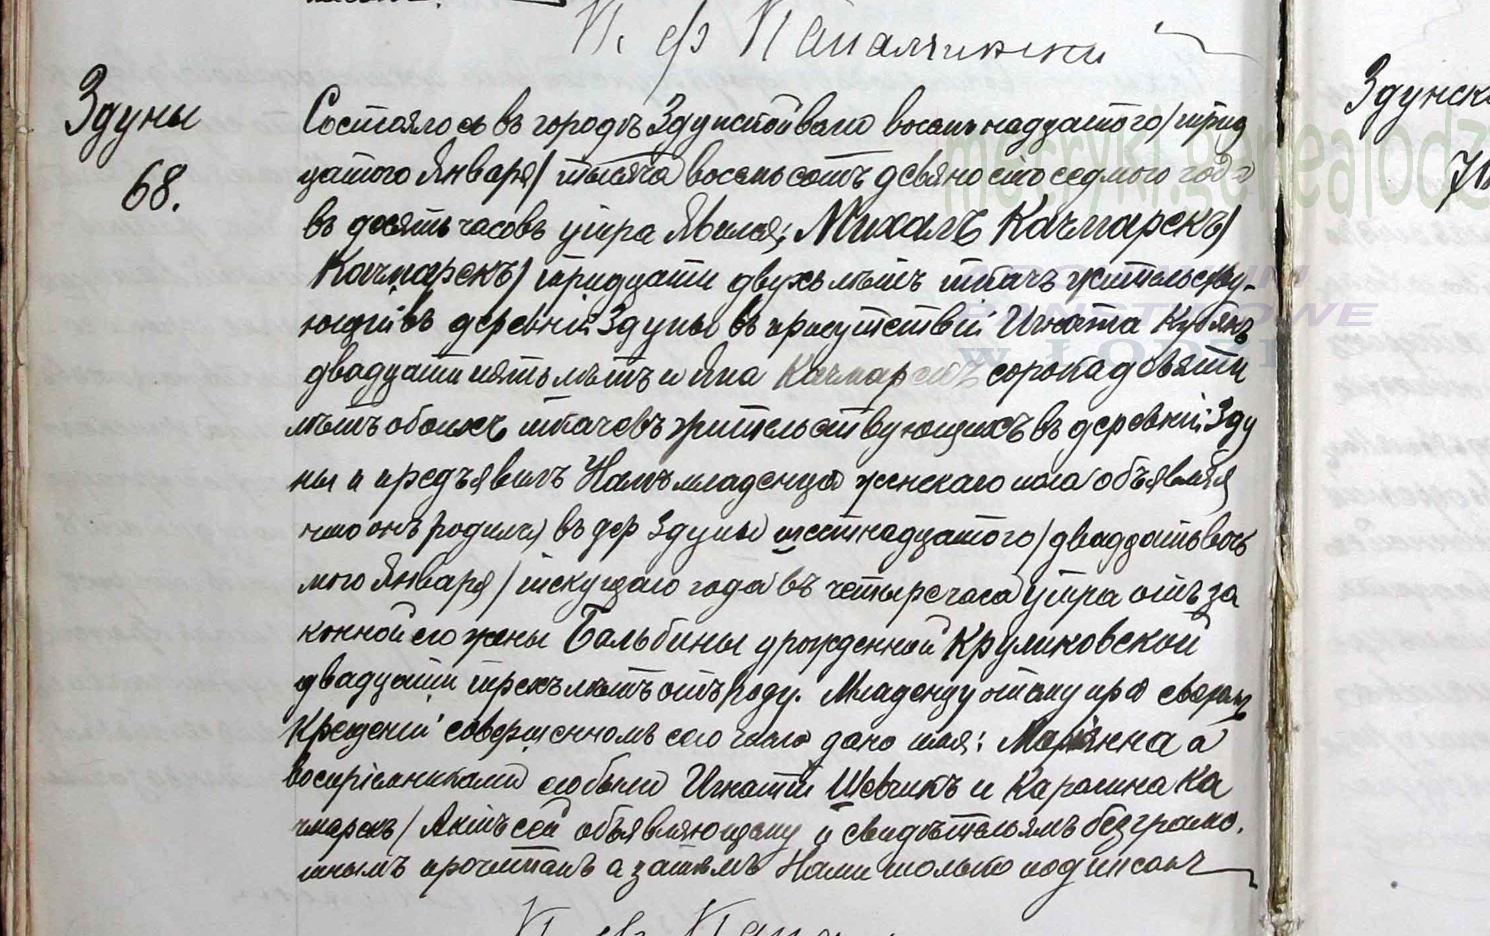 Здуны
68.
Состоялось въ городѣ Здунской воли восемнадцатого /трид
цатого Января/ тысяча восемьсотъ девяносто седмого года
въ десять часовъ утра Явился; Михалъ Качмарекъ/
Качмарекъ/ тридцати двухъ лѣтъ ткачъ жительству-
ющій въ деревни: Здуны въ присутствіи Игната Кубякъ
двадцати пять лѣтъ и Яна Качмарекъ сорока девяти
лѣтъ обоихъ ткачевъ жительствующихъ въ деревни: Зду
ны и предъявилъ Намъ младенца женскаго пола объявляя
что онъ родился въ дер Здуны шестнадцатого /двадцать вось
мого Января/ текущаго года въ четыре часа утра отъ за
конной его жены Бальбины урожденной Круликовской
двадцати трехъ лѣтъ отъ роду. Младенцу этому при святомъ
Крещеніи совершенномъ сего числа дано имя: Маріанна а
воспріемниками его были Игнатій Шевчикъ и Каролина Ка
чмарекъ/ Актъ сей объявляющему и свидѣтелямъ безграмо.
тнымъ прочитанъ а затѣмъ Нами только подписанъ
Здунск
merryki.genealodz
ARCHIWUM
PAŃSTWOWE
W ŁODZI